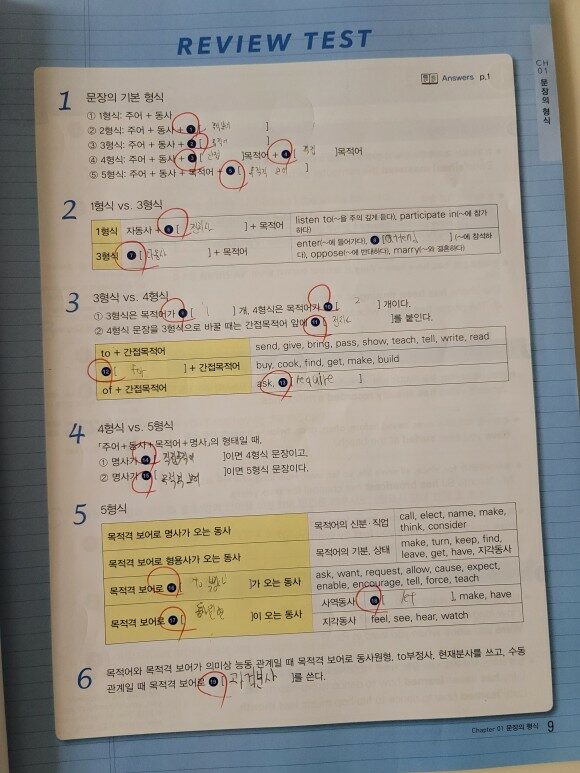 REVIEW TEST
Answers p.1
CH 01 문장의 형식
1 문장의 기본 형식
① 1형식: 주어 + 동사
② 2형식: 주어 + 동사 + 1 [ ]
③ 3형식: 주어 + 동사 + 2 [ 목적어 ]
④ 4형식: 주어 + 동사 + 3 [ 간접 ]목적어 + 4 [ 직접 ]목적어
⑤ 5형식: 주어 + 동사 + 목적어 + 5 [ 목적격 보어 ]
2 1형식 vs. 3형식
1형식 자동사 + 6 [ 전치사 ] + 목적어 listen to(~을 주의 깊게 듣다), participate in(~에 참가
하다)
3형식 7 [ 타동사 ] + 목적어 enter(~에 들어가다), 8 [ attend ](~에 참석하
다), oppose(~에 반대하다), marry(~와 결혼하다)
3 3형식 vs. 4형식
① 3형식은 목적어가 9 [ 1 ]개, 4형식은 목적어가 10 [ 2 ]개이다.
② 4형식 문장을 3형식으로 바꿀 때는 간접목적어 앞에 11 [ 전치사 ]를 붙인다.
to + 간접목적어 send, give, bring, pass, show, teach, tell, write, read
12 [ for ] + 간접목적어 buy, cook, find, get, make, build
of + 간접목적어 ask, 13 [ require ]
4 4형식 vs. 5형식
「주어+동사+목적어+명사」의 형태일 때,
① 명사가 14 [ 직접목적어 ]이면 4형식 문장이고,
② 명사가 15 [ 목적격 보어 ]이면 5형식 문장이다.
5 5형식
목적격 보어로 명사가 오는 동사 목적어의 신분·직업 call, elect, name, make,
think, consider
목적격 보어로 형용사가 오는 동사 목적어의 기분, 상태 make, turn, keep, find,
leave, get, have, 지각동사
목적격 보어로 16 [ to 부정사 ]가 오는 동사 ask, want, request, allow, cause, expect,
enable, encourage, tell, force, teach
목적격 보어로 17 [ 동사원형 ]이 오는 동사 사역동사 18 [ let ], make, have
지각동사 feel, see, hear, watch
6 목적어와 목적격 보어가 의미상 능동 관계일 때 목적격 보어로 동사원형, to부정사, 현재분사를 쓰고, 수동
관계일 때 목적격 보어로 19 [ 과거분사 ]를 쓴다.
Chapter 01 문장의 형식 9